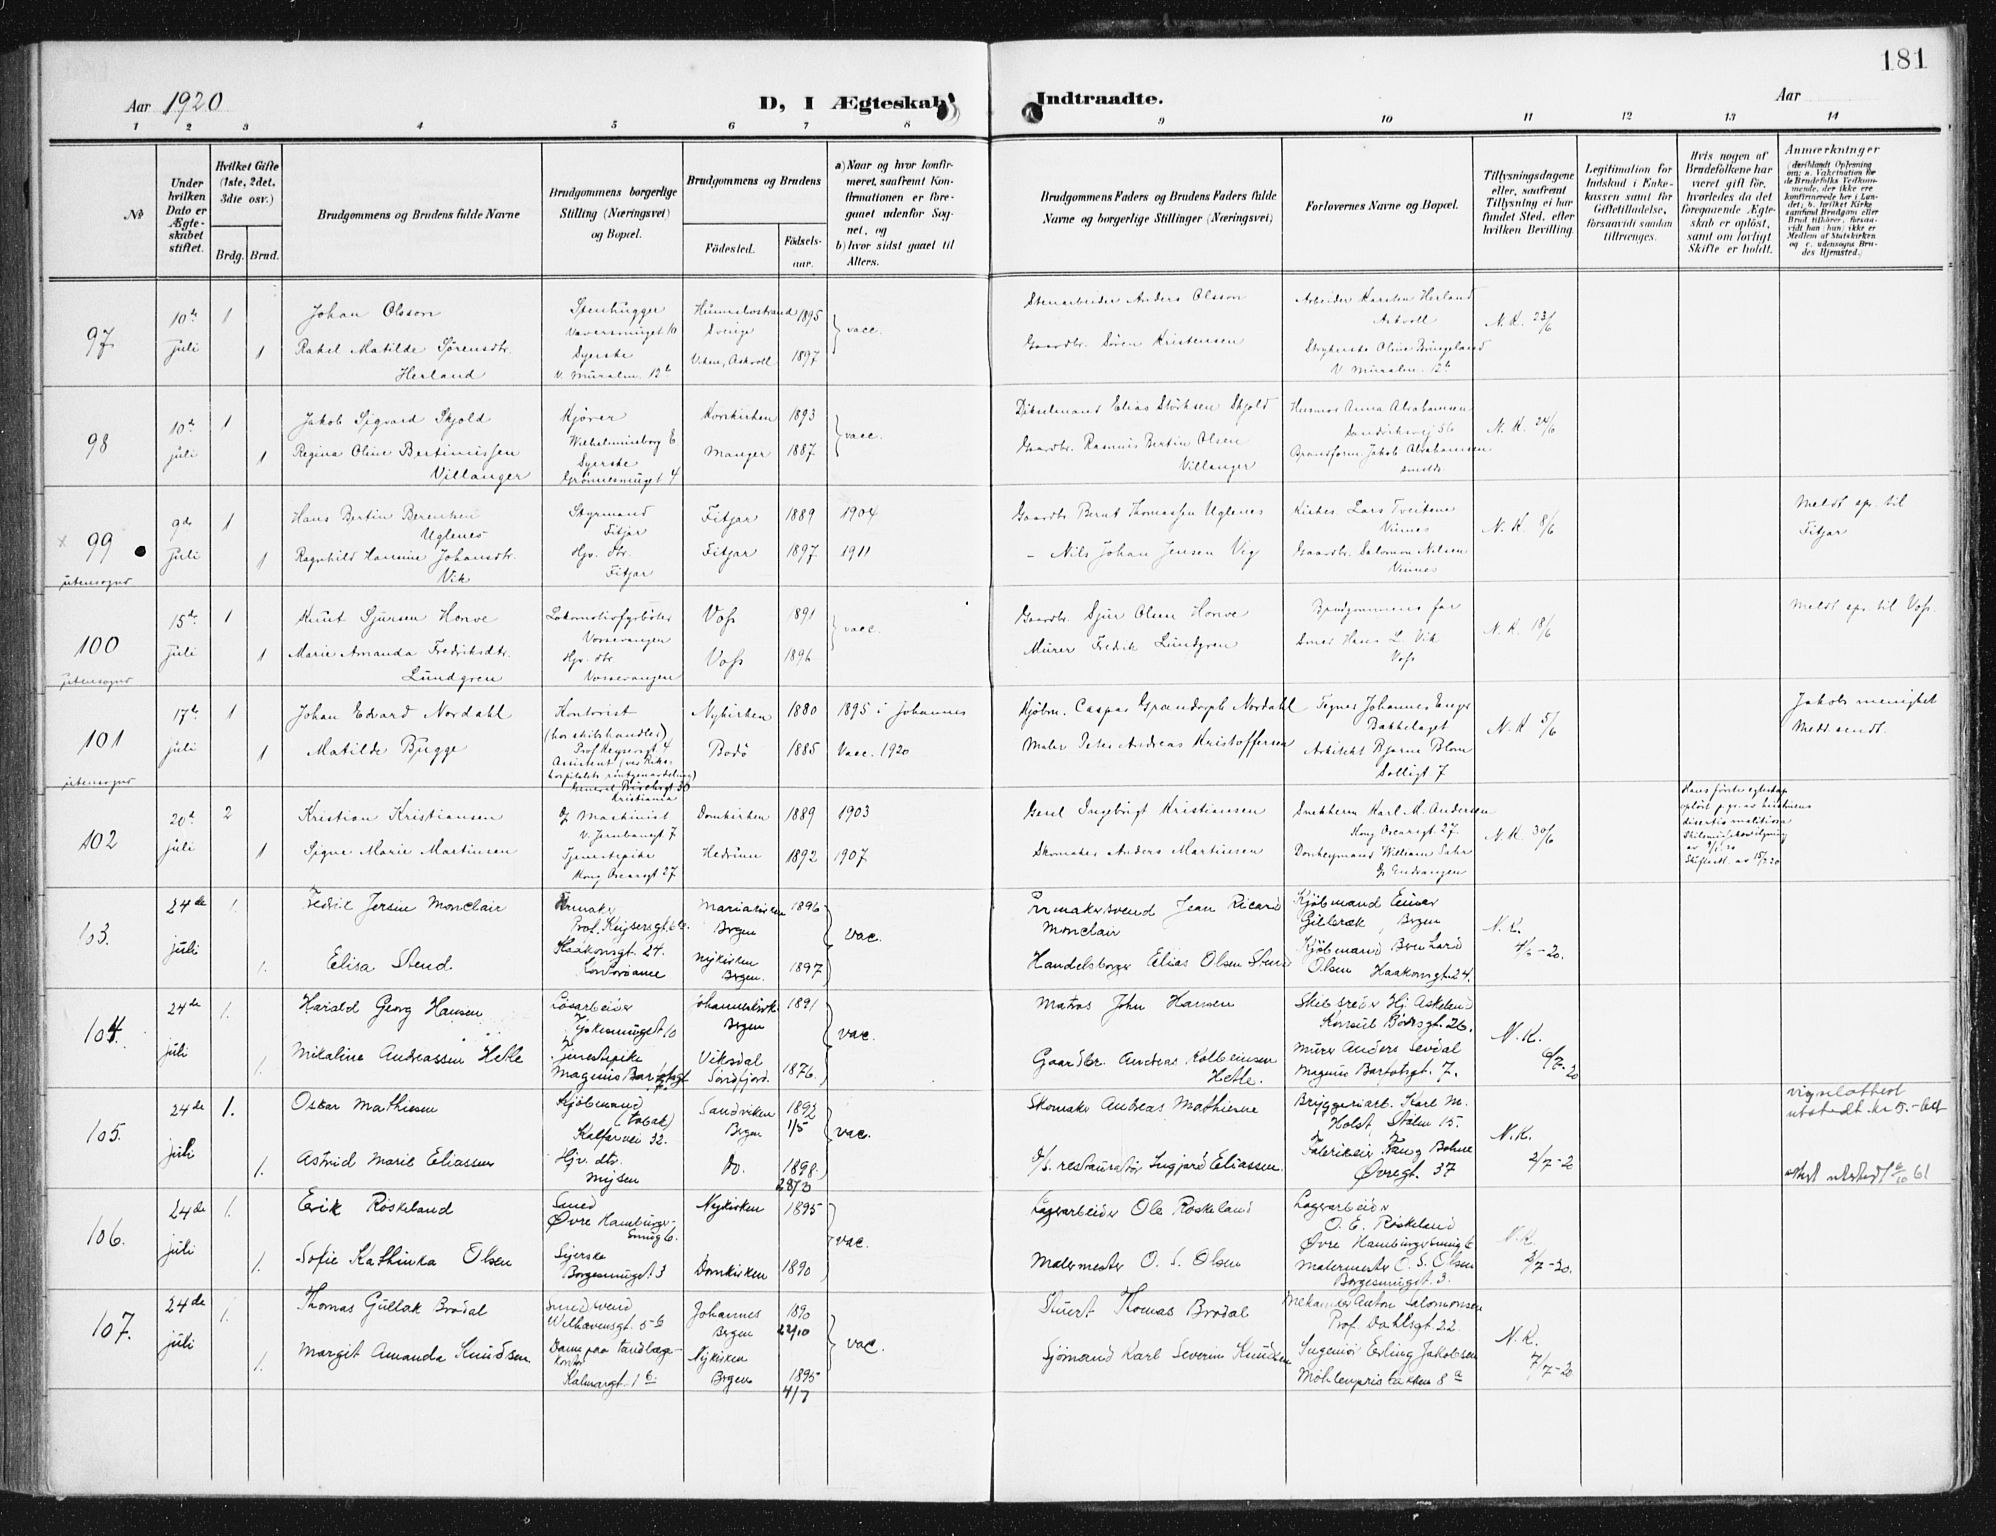 181
Aar 1920
D, I Ægteskab
Indtraadte.
Aar
1 2 3 4 5 6 7 8 9 10 11 12 13 14
No
Under hvilken Dato er Ægteskabet stiftet.
Hvilket Gifte (1ste, 2det, 3die osv.)
Brdg. Brud.
Brudgommens og Brudens fulde Navne
Brudgommens borgerlige Stilling (Næringsvei) og Bopæl.
Brudgommens og Brudens
Fødested. Fødselsaar.
a) Naar og hvor konfirmeret, saafremt Konfirmationen er foregaaet udenfor Sognet, og
b) hvor sidst gaaet til Alters.
Brudgommens Faders og Brudens Faders fulde Navne og borgerlige Stillinger (Næringsvei)
Forlovernes Navne og Bopæl.
Tillysningsdagene eller, saafremt Tillysning ei har fundet Sted, efter hvilken Bevilling.
Legitimation for Indskud i Enkekassen samt for Giftetilladelse, forsaavidt saadan tiltrænges.
Hvis nogen af Brudefolkene har været gift før, hvorledes da det foregaaende Ægteskab er opløst, samt om lovligt Skifte er holdt.
Anmærkninger
97
10de juli
1
Johan Olsson
Stenhugger
Væversmuget 10
Hunnebostrand
Sverige
1895
vacc.
Stenarbeider Anders Olsson
Arbeider Karsten Herland
Askvoll
N. K. 23/6
1
Rakel Matilde Sørensdtr. Herland
Syerske
V. Muralm. 12b
Viken, Askvoll
1897
Gaardbr. Søren Kristensen
Strykerske Oline Bringeland
V. Muralm. 12b
98
10de juli
1
Jakob Sigvard Skjold
Kjører
Wilhelmineborg 6
Korskirken
1893
vacc.
Elias Skjold
Husmor Anna Abrahamsen
Sandviksvej 56
N. K. 24/6
1
Regina Oline Bertinussen Villanger
Syerske
Grønnesmuget 4
Manger
1887
Gaardbr. Rasmus Bertin Olsen Villanger
Jakob Abrahamsen
smstds.
99
utensogns
9de juli
1
Hans Bertin Berentsen Uglenes
Styrmand
Fitjar
Fitjar
1889
1904
Gaardbr. Bernt Thomassen Uglenes
Lars Tveitene
Vinnes
N. K. 8/6
Meldt spr. til Fitjar
1
Ragnhild Hansine Johansdtr. Vik
Hjv. dtr.
Fitjar
Fitjar
1897
1911
- Nils Johan Jensen Vig
Gaardbr. Salomon Nilsen
Vinnes
100
utensogns
15de juli
1
Knut Sjursen Honve
Lokomotivfyrbøter
Vossevangen
Voss
1891
vacc.
Gaardbr. Sjur Olsen Honve
Brudgommens far
N. K. 18/6
Meldt spr. til Voss.
1
Marie Amanda Fredriksdtr. Lundgren
Hjv. dtr.
Vossevangen
Voss
1896
Murer Fredrik Lundgren
Smed Hans L. Vik
Voss
101
utensogns
17de juli
1
Johan Edvard Nordahl
Kontorist
(hos skibshandler)
Prof. Keysersgt. 4
Nykirken
1880
1895 i Johannes
Kjøbm. Caspar Grændorph Nordahl
Johannes
Bakkelaget
N. K 5/6
Jakobs menighet
Meld. sendt.
1
Matilde Bugge
Assistent (ved Rikshospitalets røntgenavdeling)
General Birchsgt 30
Kristiania
Bodø
1885
Vacc. 1920
Maler Peter Andreas Kristoffersen
Arkitekt Bjarne Blom
Solligt 7
102
20de juli
2
Kristian Kristiansen
Maskinist
V. Jernbanegt. 7
Domkirken
1889
1903
Ingebrigt Kristiansen
Snekkerm. Karl M. Andersen
Kong Oscarsgt 27
N. K. 30/6
Hans første egteskap opløst
av 15/7 20
1
Signe Marie Martinsen
Tjenestepike
Kong Oscarsgt 27
Hedrum
1892
1907
Skomaker Anders Martinsen
Donkeymand William
103.
24de juli
1.
Fredrik Jersin Monclair
Prof. Keysersgt.
Mariakirken
Bergen
1896
vac.
Purmakersvend Jean Ricard Monclair
Kjøbmand Einar Gilbræk, Bergen
N. K.
1.
Elisa Stend
Haakonsgt. 24.
Nykirken
Bergen.
1897
Handelsborger Elias Olsen Stend
Kjøbmand Bernhard Olsen Haakonsgt. 24.
104.
24de juli
1.
Harald Georg Hansen
Løsarbeider
10
Johanneskirk.
Bergen
1891
vac.
Matros John Hansen
Skibsreder Hj. Askeland
Konsul Børsgt. 26.
N. K.
6/7-20
1.
Mikaline Andreassen Hetle
Tjenestepike
Magnus Barfotsgt 7.
Viksdal
Søndfjord.
1876.
Gaardbr. Andreas Kolbeinsen Hetle.
Murer Anders Sevdal
Magnus Barfotsgt. 7.
105.
24de juli
1.
Oskar Mathiesen
Kjøbmand
(tobak)
Kalfarvei 32.
Sandviken
Bergen
1892
1/5
vac.
Skomaker Andreas Mathiesen
Bryggeriarb. Karl M. Holst, Stølen 15.
N. K.
2/7-20
vigselattest utstedt. kr 5.- bet
1.
Astrid Marie Eliassen
Hjv. dtr.
Mysen
Do.
1898.
28/3
restauratør Ingjard Eliassen
Fabrikeier Fang Bohne
Øvregt. 37
Attest utstedt 6/10 61
106.
24de juli
1.
Erik Røskeland
Smed
Øvre Hamburgersmug 6.
Nykirken
1895
vac.
Lagerarbeider Ole Røskeland
Lagerarbeider O. E. Røskeland
Øvre Hamburgersmug 6
N. K.
2/7-20.
1.
Sofie Kathinka Olsen
Syerske
Borgesmuget 3
Domkirken
1890
Malermester O. S. Olsen
Malermester O. S. Olsen
Borgesmuget. 3.
107.
24de juli
1.
Thomas Gullak Brødal
Smedsvend
Welhavensgt. 56
Johannes
Bergen
1890
22/10
vac.
Stuert Thomas Brødal
Mekaniker Anton Salomonsen
Prof. Dahlsgt 22
N. K.
7/7-20
1.
Margit Amanda Knudsen
Dame paa tandlægekontor
Kalmargt. 16.
Nykirken
Bergen
1895
4/7
Sjømand Karl Severin Knudsen
Ingeniør Erling Jakobsen
Møhlenprisbakken 8a